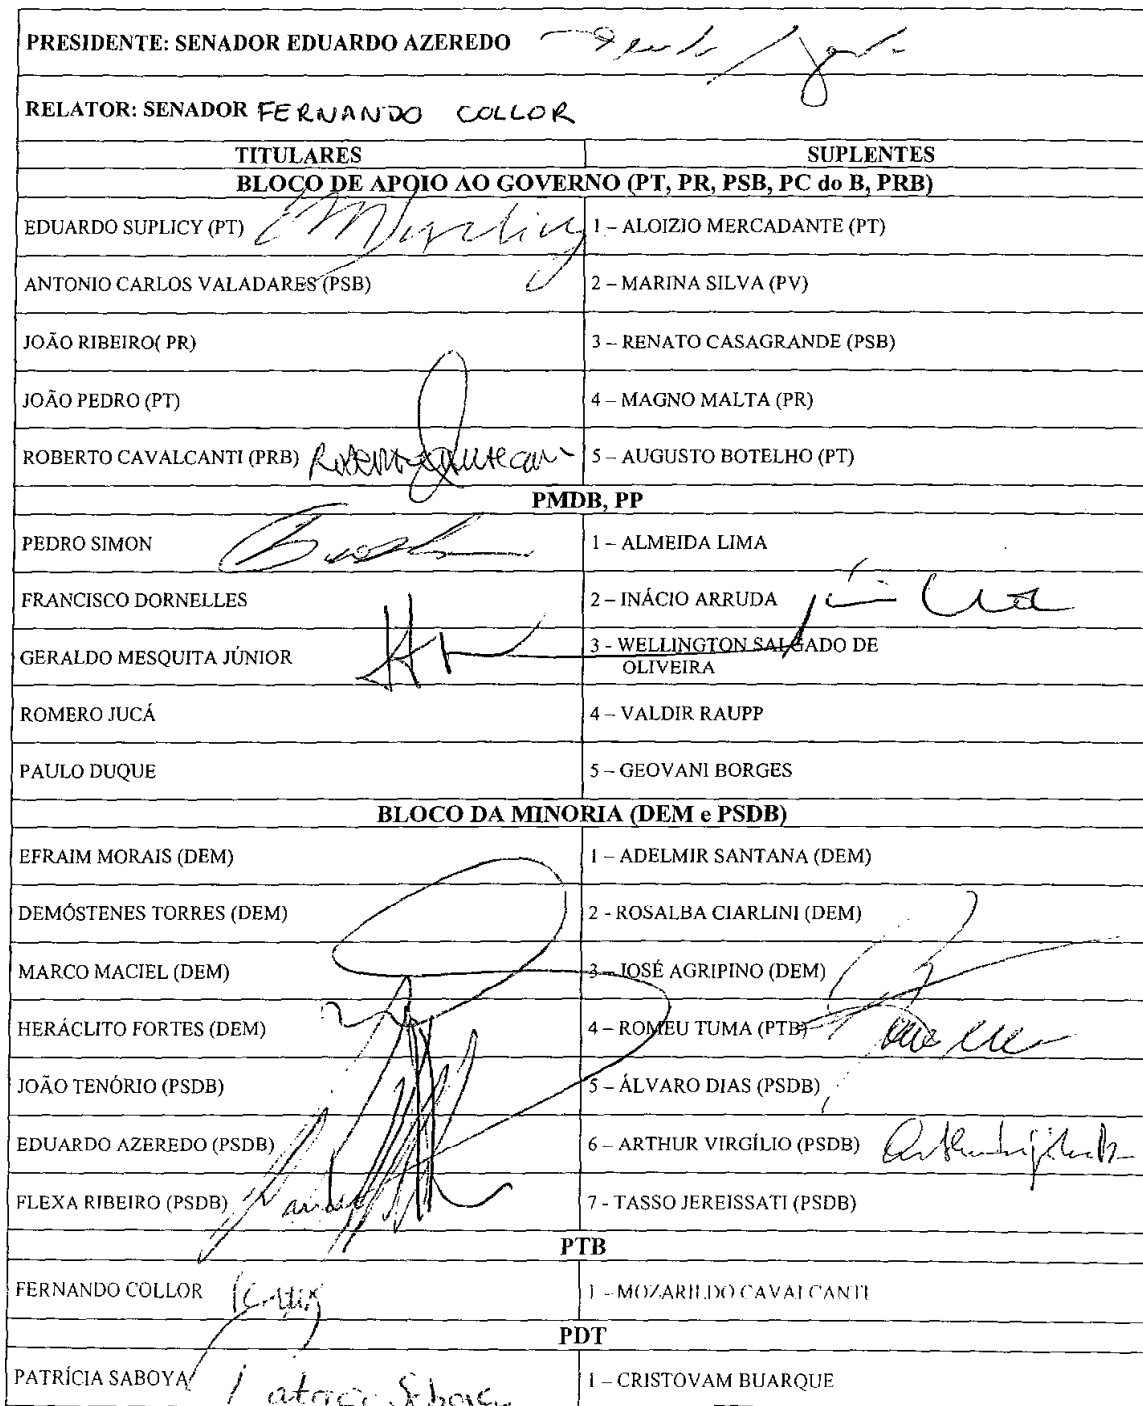 PRESIDENTE: SENADOR EDUARDO AZEREDO
RELATOR: SENADOR FERNANDO COLLOR
TITULARES SUPLENTES
BLOCO DE APOIO AO GOVERNO (PT, PR, PSB, PC do B, PRB)
EDUARDO SUPLICY (PT) 1 – ALOIZIO MERCADANTE (PT)
ANTONIO CARLOS VALADARES (PSB) 2 – MARINA SILVA (PV)
JOÃO RIBEIRO( PR) 3 – RENATO CASAGRANDE (PSB)
JOÃO PEDRO (PT) 4 – MAGNO MALTA (PR)
ROBERTO CAVALCANTI (PRB) 5 – AUGUSTO BOTELHO (PT)
PMDB, PP
PEDRO SIMON 1 – ALMEIDA LIMA
FRANCISCO DORNELLES 2 – INÁCIO ARRUDA
GERALDO MESQUITA JÚNIOR 3 - WELLINGTON SALGADO DE
OLIVEIRA
ROMERO JUCÁ 4 – VALDIR RAUPP
PAULO DUQUE 5 – GEOVANI BORGES
BLOCO DA MINORIA (DEM e PSDB)
EFRAIM MORAIS (DEM) 1 – ADELMIR SANTANA (DEM)
DEMÓSTENES TORRES (DEM) 2 - ROSALBA CIARLINI (DEM)
MARCO MACIEL (DEM) 3 – JOSÉ AGRIPINO (DEM)
HERÁCLITO FORTES (DEM) 4 – ROMEU TUMA (PTB)
JOÃO TENÓRIO (PSDB) 5 – ÁLVARO DIAS (PSDB)
EDUARDO AZEREDO (PSDB) 6 – ARTHUR VIRGÍLIO (PSDB)
FLEXA RIBEIRO (PSDB) 7 - TASSO JEREISSATI (PSDB)
PTB
FERNANDO COLLOR 1 – MOZARILDO CAVALCANTI
PDT
PATRÍCIA SABOYA 1 – CRISTOVAM BUARQUE